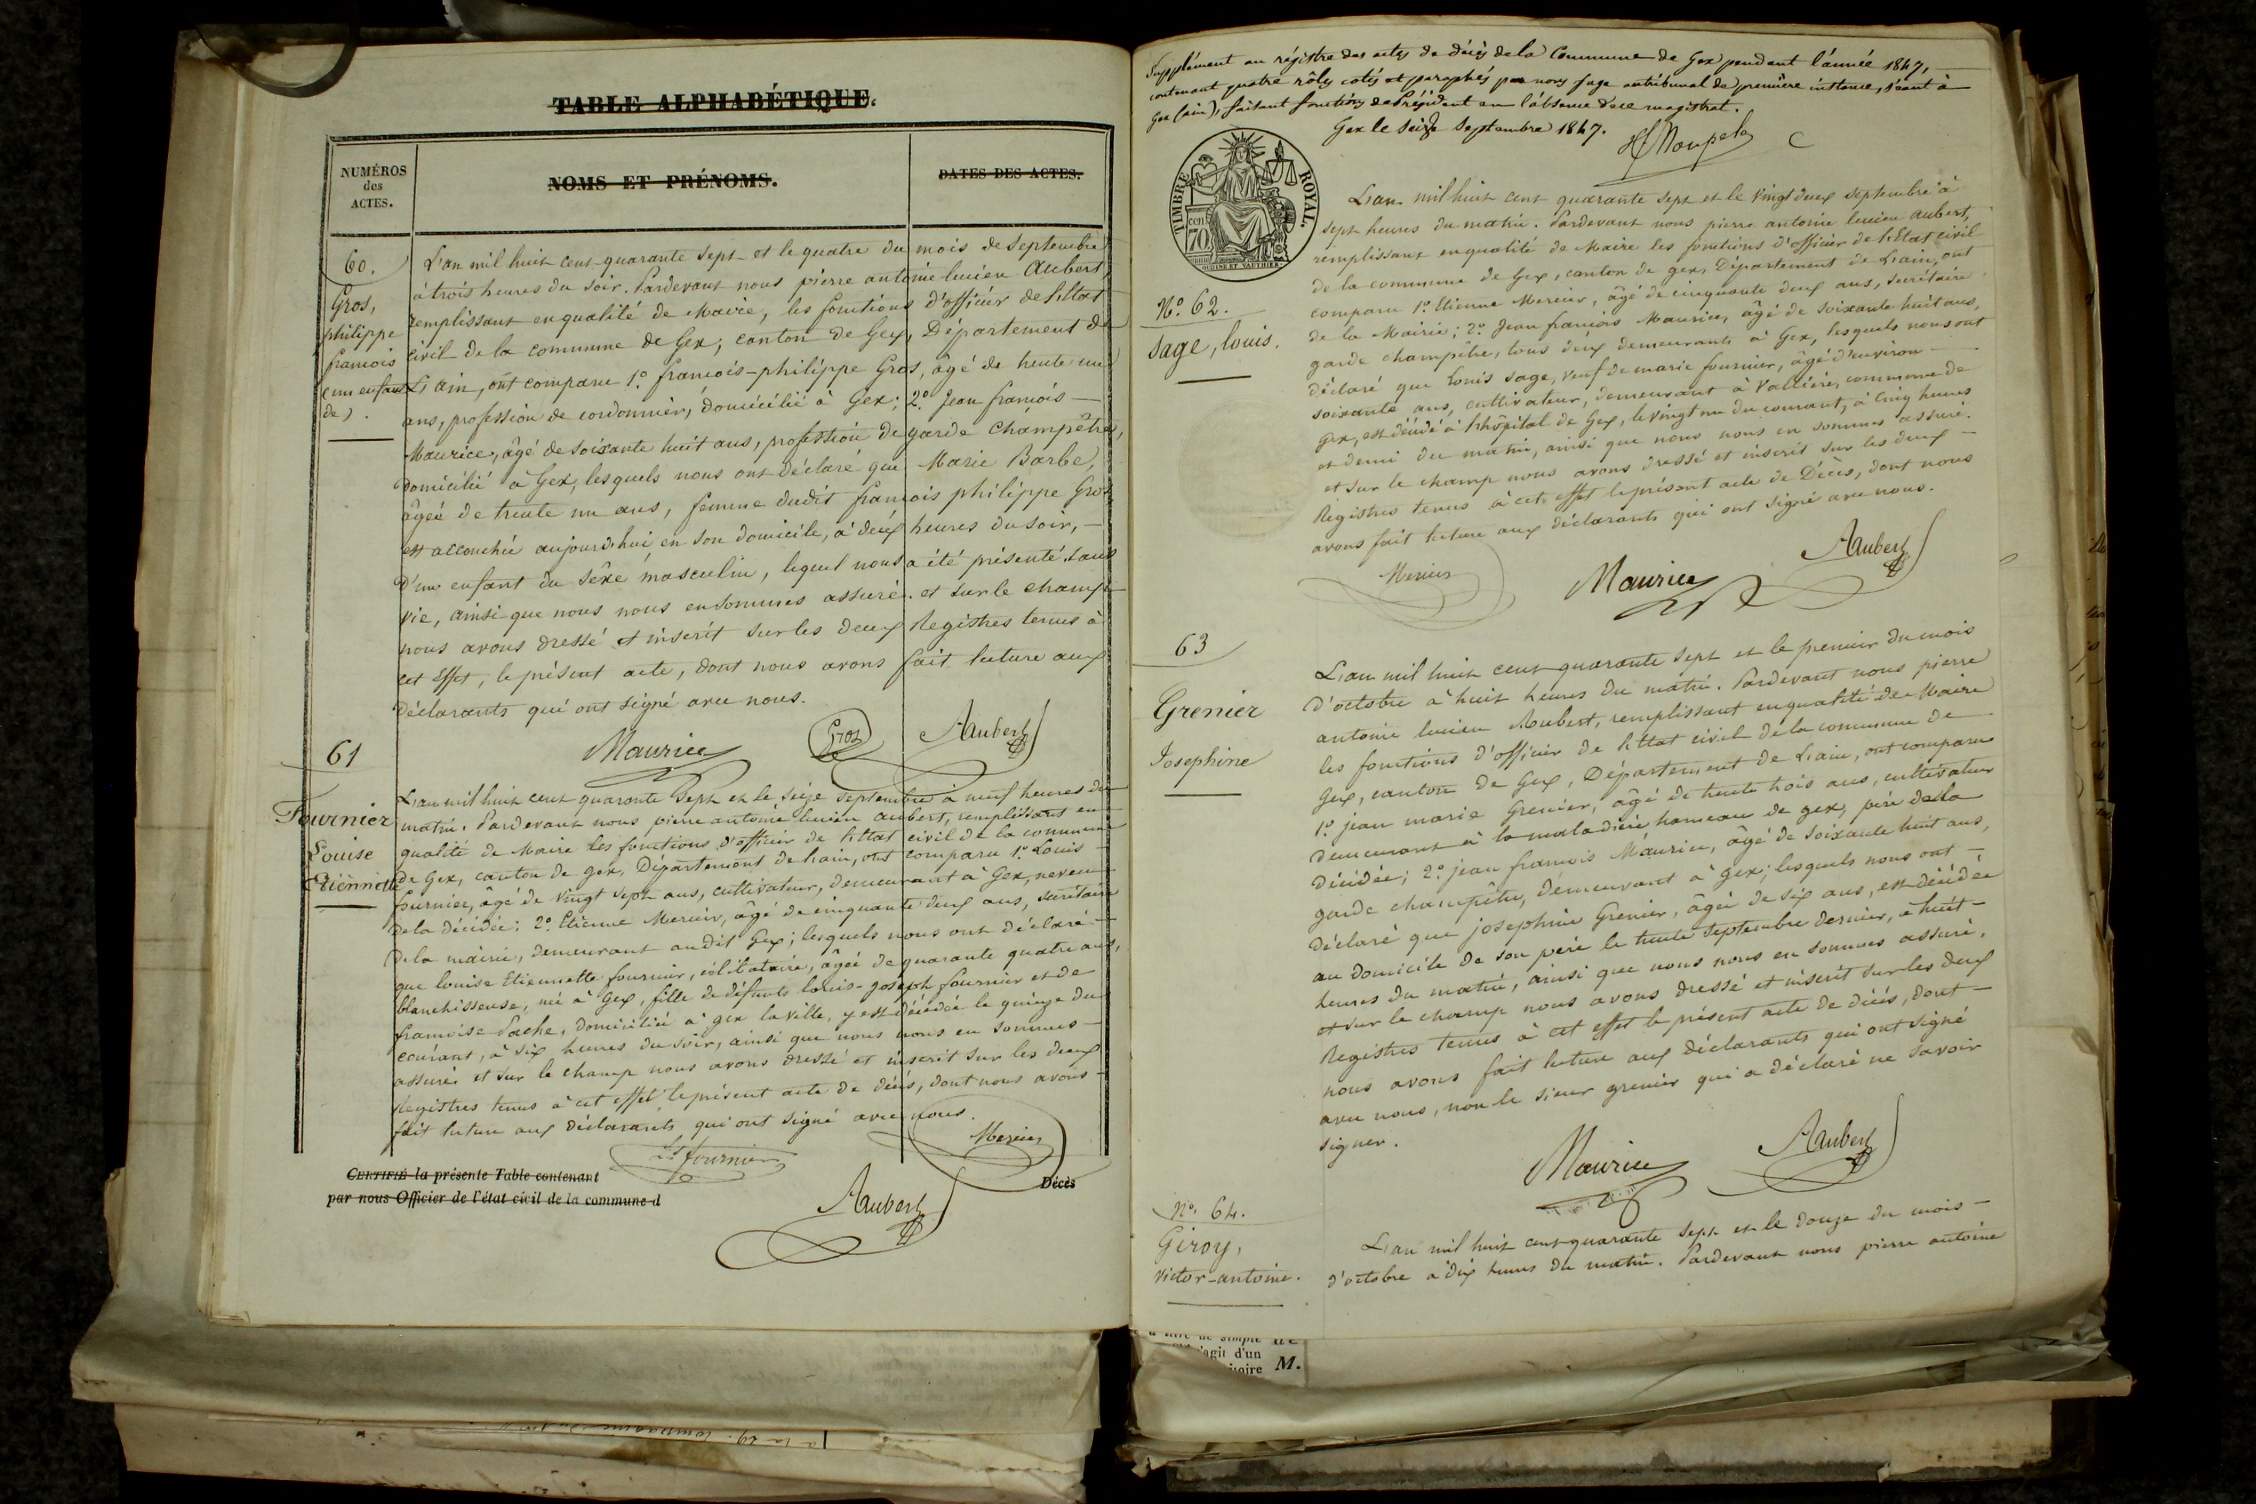 TABLE ALPHABÉTIQUE.
NUMÉROS
des
ACTES.
NOMS ET PRÉNOMS.
DATES DES ACTES.
60.
Gros,
philippe
francois
(un enfant
de).
L'an mil huit cent quarante sept et le quatre du mois de septembre
à trois heures du soir. Pardevant nous pierre antoine lucien Aubert,
remplissant en qualité de Maire, les fonctions d'officier de l'Etat
civil de la commune de Gex, canton de Gex, Département de
L'ain, ont comparu 1.º francois-philippe Gros, âgé de trente un
ans, profession de cordonnier, domicilié à Gex; 2.º Jean françois
Maurice, âgé de soixante huit ans, profession de garde champêtre,
domicilié à Gex, lesquels nous ont déclaré que Marie Barbe,
âgée de trente un ans, femme dudit francois philippe Gros
est accouchée aujourd'hui en son domicile, à deux heures du soir,
d'un enfant du sêxe masculin, lequel nous a été présenté sans
vie, ainsi que nous nous en sommes assuré. et sur le champ
nous avons dressé et inscrit sur les deux Registres tenus à
cet effet, le présent acte, dont nous avons fait lecture aux
déclarants qui ont signé avec nous.
Maurice Gros AAubert
61
Fournier
Louise
Etiennette
L'an mil huit cent quarante sept et le seize septembre à neuf heures du
matin. Pardevant nous pierre antoine lucien aubert, remplissant en
qualité de Maire les fonctions d'officier de l'Etat civil de la commune
de Gex, canton de gex, Département de l'ain, ont comparu 1.º Louis
fournier, âgé de vingt sept ans, cultivateur, demeurant à Gex, neveu
de la décédée; 2.º Etienne Mercier, âgé de cinquante deux ans, secrétaire
de la mairie, demeurant audit Gex; lesquels nous ont déclaré
que louise Etiennette fournier, célibataire, âgée de quarante quatre ans,
blanchisseuse, née à Gex, fille de défunts louis-joseph fournier et de
francoise Pache, domiciliée à gex la ville, y est décédée le quinze du
courant, à six heures du soir, ainsi que nous nous en sommes
assuré. et sur le champ nous avons dressé et inscrit sur les deux
Registres tenus à cet effet le présent acte de décès, dont nous avons
fait lecture aux déclarants qui ont signé avec nous.
Ls fournier Mercier
CERTIFIÉ la présente Table contenant
Décès
par nous Officier de l'état civil de la commune d
AAubert
Supplément au régistre des actes de décès de la Commune de Gex pendant l'année 1847,
contenant quatre rôles cotés et paraphés par nous juge au tribunal de première instance, séant à
Gex (ain), faisant fonctions de Président en l'absence de ce magistrat.
Gex le seize Septembre 1847.
TIMBRE ROYAL.
cen
70
Nº. 62.
Sage, louis.
L'an mil huit cent quarante sept et le vingt deux septembre à
sept heures du matin. Pardevant nous pierre antoine lucien aubert,
remplissant en qualité de Maire les fonctions d'officier de l'Etat civil
de la commune de Gex, canton de gex, Département de L'ain, ont
comparu 1.º Etienne Mercier, âgé de cinquante deux ans, secrétaire
de la Mairie; 2.º Jean françois Maurice, âgé de soixante huit ans,
garde champêtre, tous deux demeurants à Gex, lesquels nous ont
déclaré que Louis Sage, veuf de marie fournier, âgé d'environ
soixante ans, cultivateur, demeurant à Vallière, commune de
Gex, est décédé à l'hôpital de Gex, le vingt un du courant, à cinq heures
et demi du matin, ainsi que nous nous en sommes assuré.
et sur le champ nous avons dressé et inscrit sur les deux
Registres tenus à cet effet le présent acte de Décès, dont nous
avons fait lecture aux déclarants qui ont signé avec nous.
Mercier Maurice AAubert
63
Grenier
Josephine
L'an mil huit cent quarante sept et le premier du mois
d'octobre à huit heures du matin. Pardevant nous pierre
antoine lucien Aubert, remplissant en qualité de Maire
les fonctions d'officier de l'Etat civil de la commune de
Gex, canton de Gex, Département de L'ain, ont comparu
1.º jean marie Grenier, âgé de trente trois ans, cultivateur
demeurant à la maladière hameau de gex, père de la
décédée; 2.º jean francois Maurice, âgé de soixante huit ans,
garde champêtre, demeurant à gex; lesquels nous ont
déclaré que josephine Grenier, âgée de six ans, est décédée
au domicile de son père le trente septembre dernier, à huit
heures du matin, ainsi que nous nous en sommes assuré.
et sur le champ nous avons dressé et inscrit sur les deux
Registres tenus à cet effet le présent acte de décès, dont
nous avons fait lecture aux déclarants qui ont signé
avec nous, non le sieur grenier qui a déclaré ne savoir
signer.
Maurice AAubert
Nº. 64.
Giroy,
victor-antoine.
L'an mil huit cent quarante sept et le douze du mois
d'octobre à dix heures du matin. Pardevant nous pierre antoine
s'agit d'un
M.